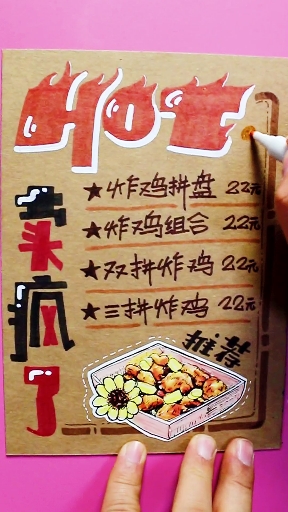 HOT
★炸鸡拼盘 22元
★炸鸡组合 22元
★双拼炸鸡 22元
★三拼炸鸡 22元
卖疯了
推荐